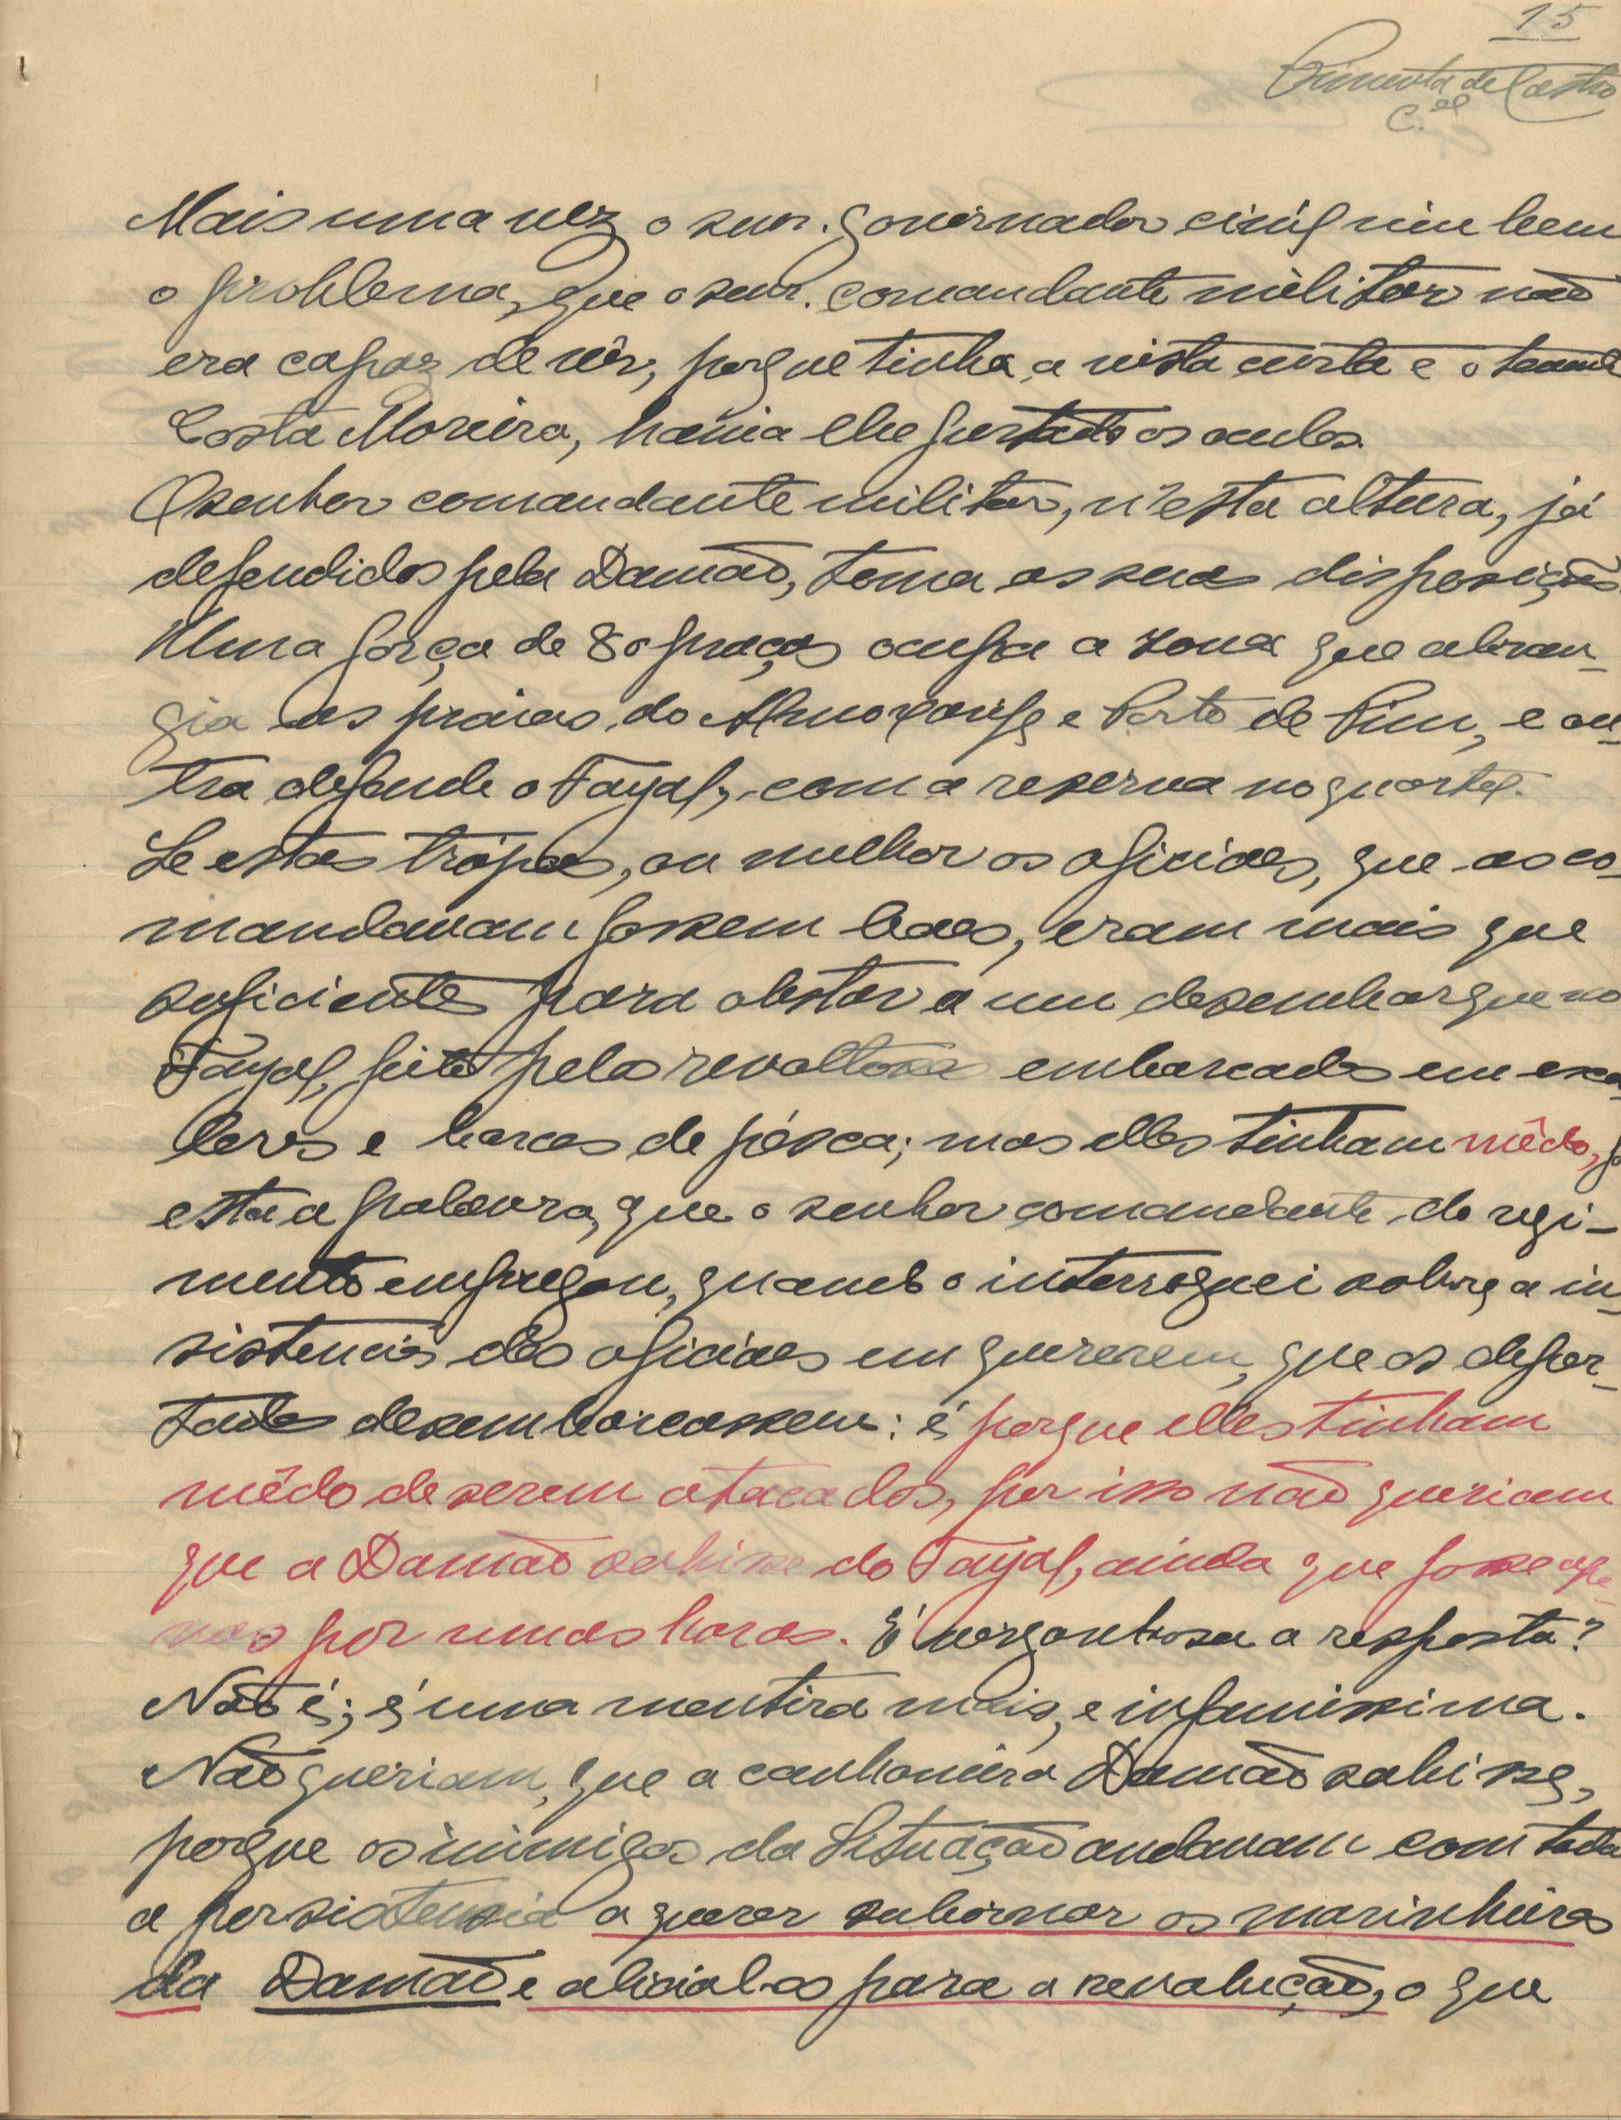 15
Pimenta de Castro
C.el
Mais uma vez o snr. governador civil viu bem
o problema, que o snr. comandante militar não
era capaz de vêr, porque tinha a vista curta e o tenente
Costa Moreira, havia lhe furtado os oculos.
O senhor comandante militar, n'esta altura, já
defendidos pela Damão, toma as suas disposições.
Uma força de 80 praças ocupa a zona que abran-
gia as praias do Almoxarife e Porto de Pim, e ou-
tra defende o Fayal, com a reserva no quartel.
Se estas trópas, ou melhor os oficiaes, que as co-
mandavam fossem boas, eram mais que
suficientes para obstar a um desembarque no
Fayal, feito pelos revoltosos embarcados em esca-
leres e barcos de pésca; mas elles tinham mêdo, foi
esta a palavra, que o senhor comandante do regi-
mento empregou, quando o interroguei sobre a in-
sistencia dos oficiaes em quererem, que os depor-
tados desembarcassem: é porque elles tinham
mêdo de serem atacados, por isso não queriam
que a Damão sahisse do Fayal, ainda que fosse ape-
nas por umas horas. É vergonhosa a resposta?
Não é; é uma mentira mais, e infamissima.
Não queriam, que a canhoneira Damão sahisse,
porque os inimigos da Situação andavam com toda
a persistencia a querer subornar os marinheiros
da Damão e alicial-os para a revolução, o que